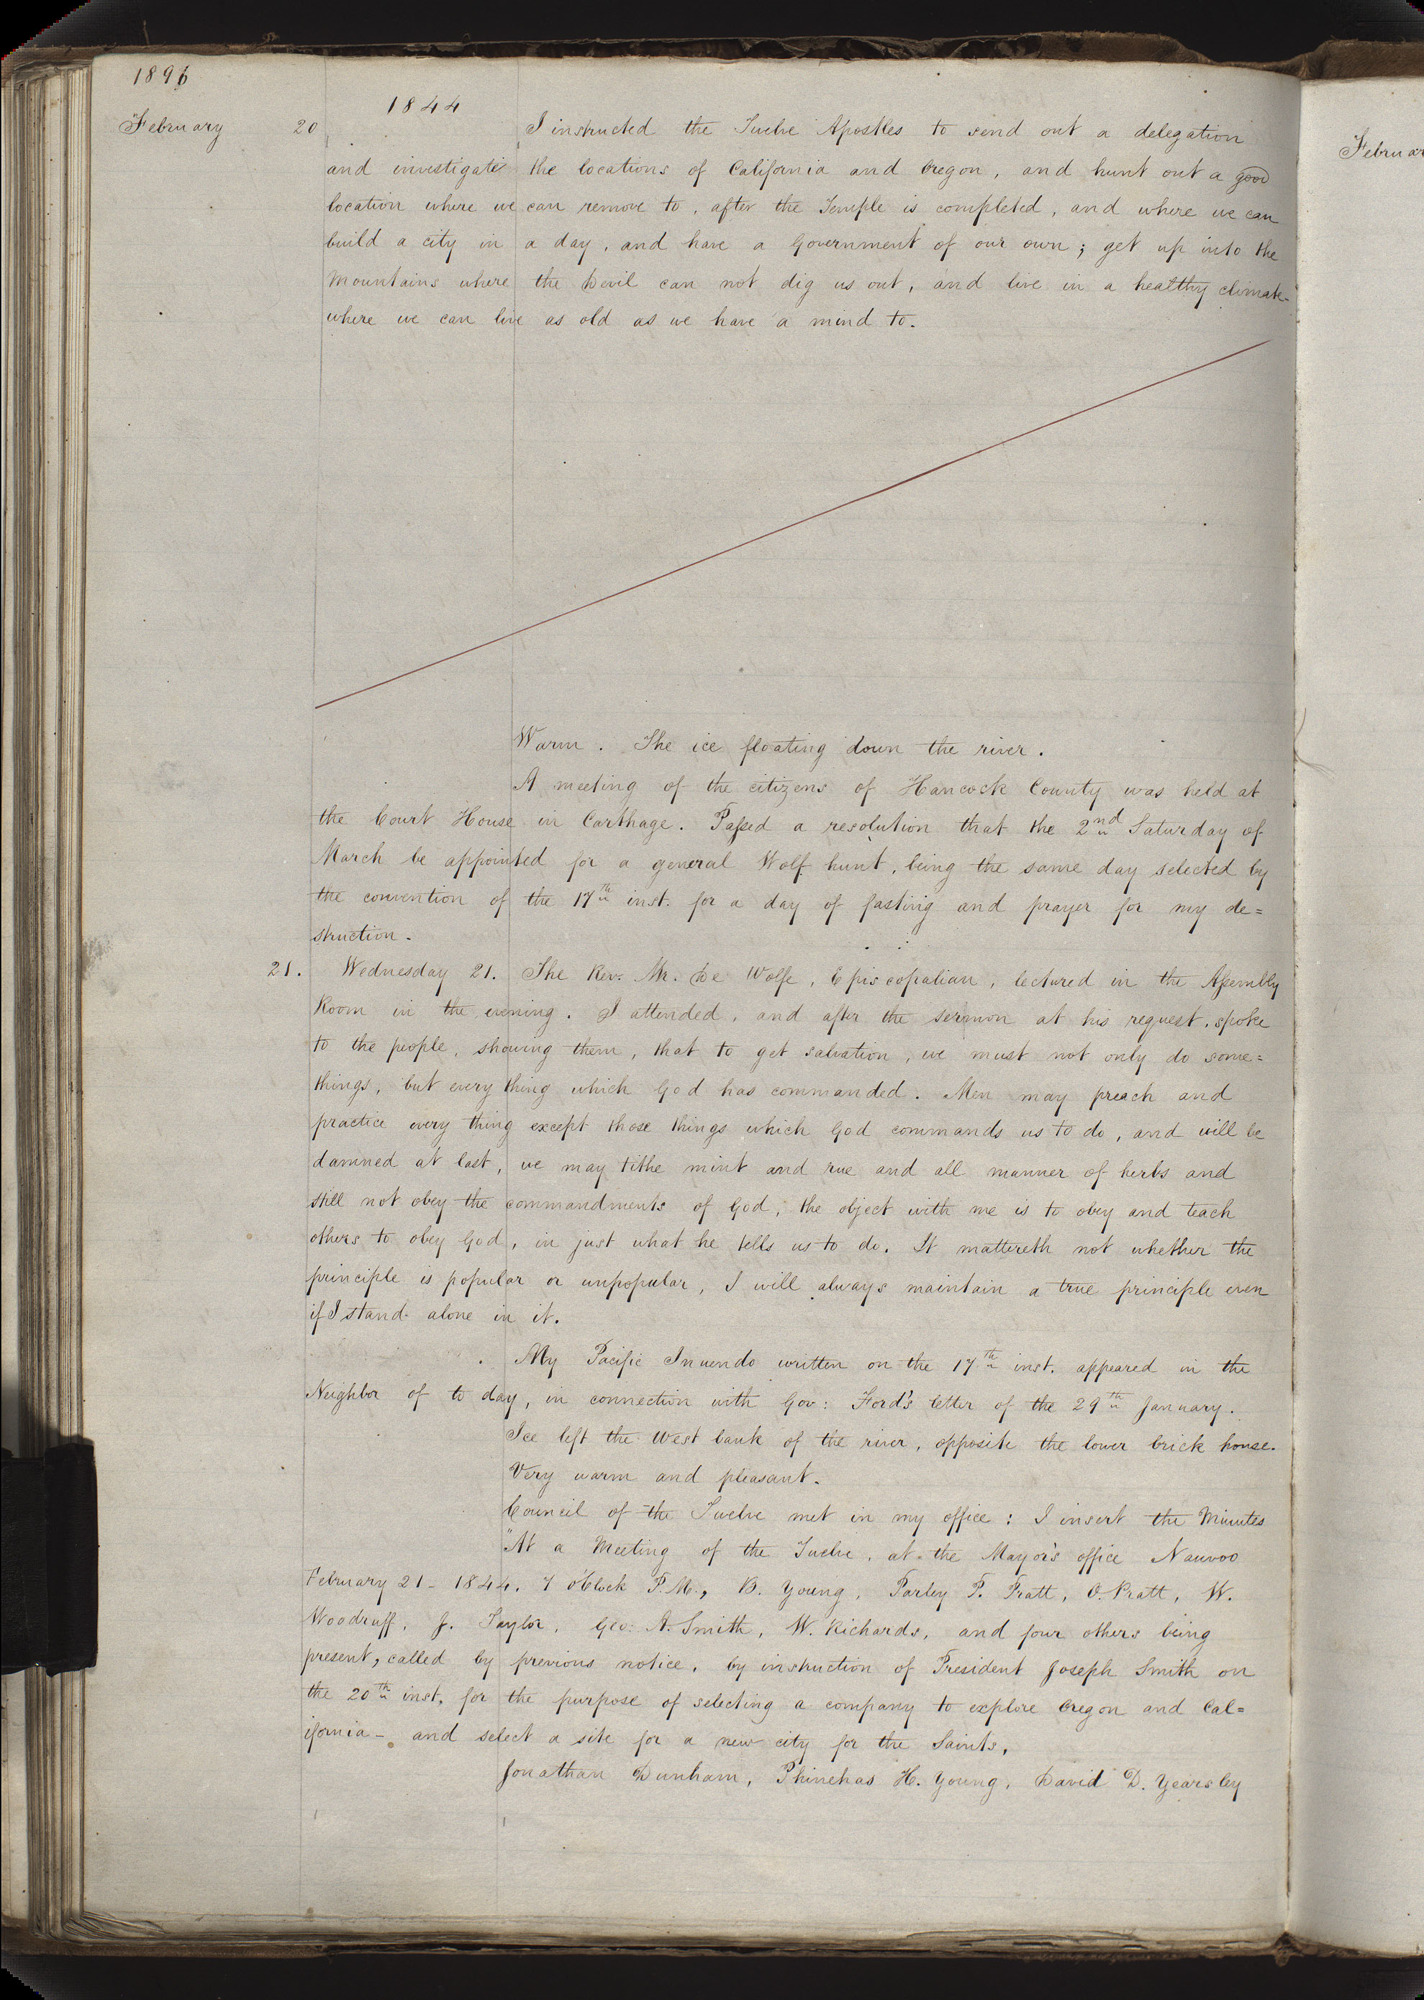 1896
1844
February 20 I instructed the Twelve Apostles to send out a delegation
and investigate the locations of California and Oregon, and hunt out a good
location where we can remove to, after the Temple is completed, and where we can
build a city in a day, and have a Government of our own; get up into the
mountains where the Devil can not dig us out, and live in a healthy climate
where we can live as old as we have a mind to.
Warm. The ice floating down the river.
A meeting of the citizens of Hancock County was held at
the Court House in Carthage. Passed a resolution that the 2nd Saturday of
March be appointed for a general Wolf hunt, being the same day selected by
the convention of the 17th inst. for a day of fasting and prayer for my de=
struction.
21. Wednesday 21. The Rev. Mr. De Wolfe, Episcopalian, lectured in the Assembly
Room in the evening. I attended, and after the sermon at his request, spoke
to the people, showing them, that to get salvation, we must not only do some=
things, but every thing which God has commanded. Men may preach and
practice every thing except those things which God commands us to do, and will be
damned at last, we may tithe mint and rue and all manner of herbs and
still not obey the commandments of God; the object with me is to obey and teach
others to obey God, in just what he tells us to do. It mattereth not whether the
principle is popular or unpopular, I will always maintain a true principle even
if I stand alone in it.
My Pacific Inuendo written on the 17th inst. appeared in the
Neighbor of to day, in connection with Gov: Ford's letter of the 29th January.
Ice left the West bank of the river, opposite the lower brick house.
Very warm and pleasant.
Council of the Twelve met in my office: I insert the Minutes
"At a Meeting of the Twelve, at the Mayor's office Nauvoo
February 21- 1844. 7 o'Clock P.M., B. Young, Parley P. Pratt, O. Pratt, W.
Woodruff, J. Taylor, Geo: A. Smith, W. Richards, and four others being
present, called by previous notice, by instruction of President Joseph Smith on
the 20th inst, for the purpose of selecting a company to explore Oregon and Cal=
ifornia- and select a site for a new city for the Saints,
Jonathan Dunham, Phinehas H. Young, David D. Yearsley
Februar